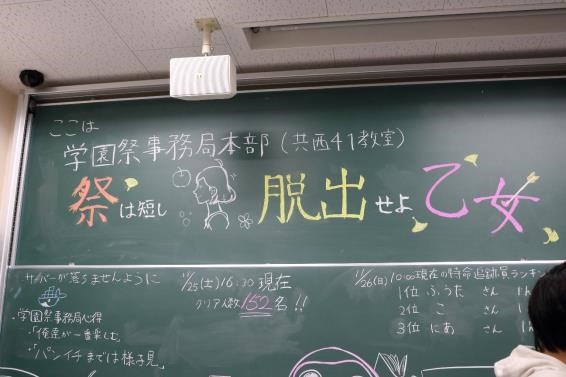 ここは
学園祭事務局本部(共西41教室)
祭は短し 脱出せよ乙女
サーバーが落ちませんように
・学園祭事務局心得
・「俺達が一番楽しむ」
・「パンイチまでは様子見」
11/25(土)16:30現在
クリア人数152名!!
11/26(日)10:00現在の特命追跡員ランキン
1位 ふうた さん
2位 こ さん
3位 にあ さん